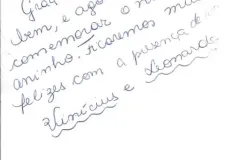 Graç
bem, e ago
comemorar o n
aninho. Ficaremos mui
felizes com a presença de
Vinícius e Leonardo